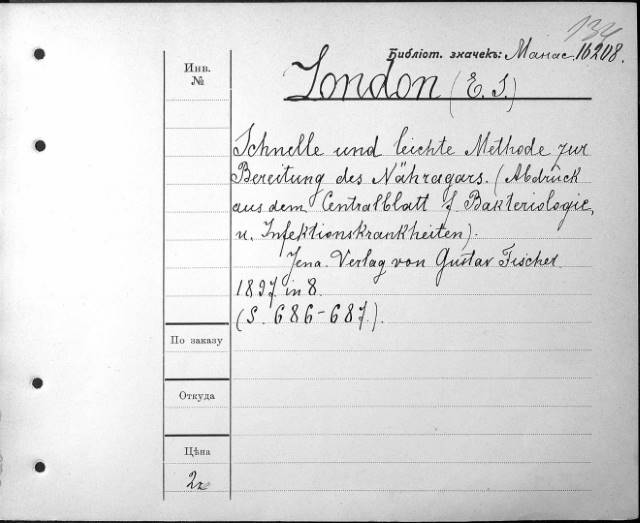 134
Библіот. значекъ: Манас. 16208.
Инв.
№
London (E. S.)
Schnelle und leichte Methode zur
Bereitung des Nähragars. (Abdruck
aus dem Centralblatt f. Bakteriologie,
u. Infektionskrankheiten).
Jena. Verlag von Gustav Fischer.
1897. in 8.
(S. 686-687.).
По заказу
Откуда
Цѣна